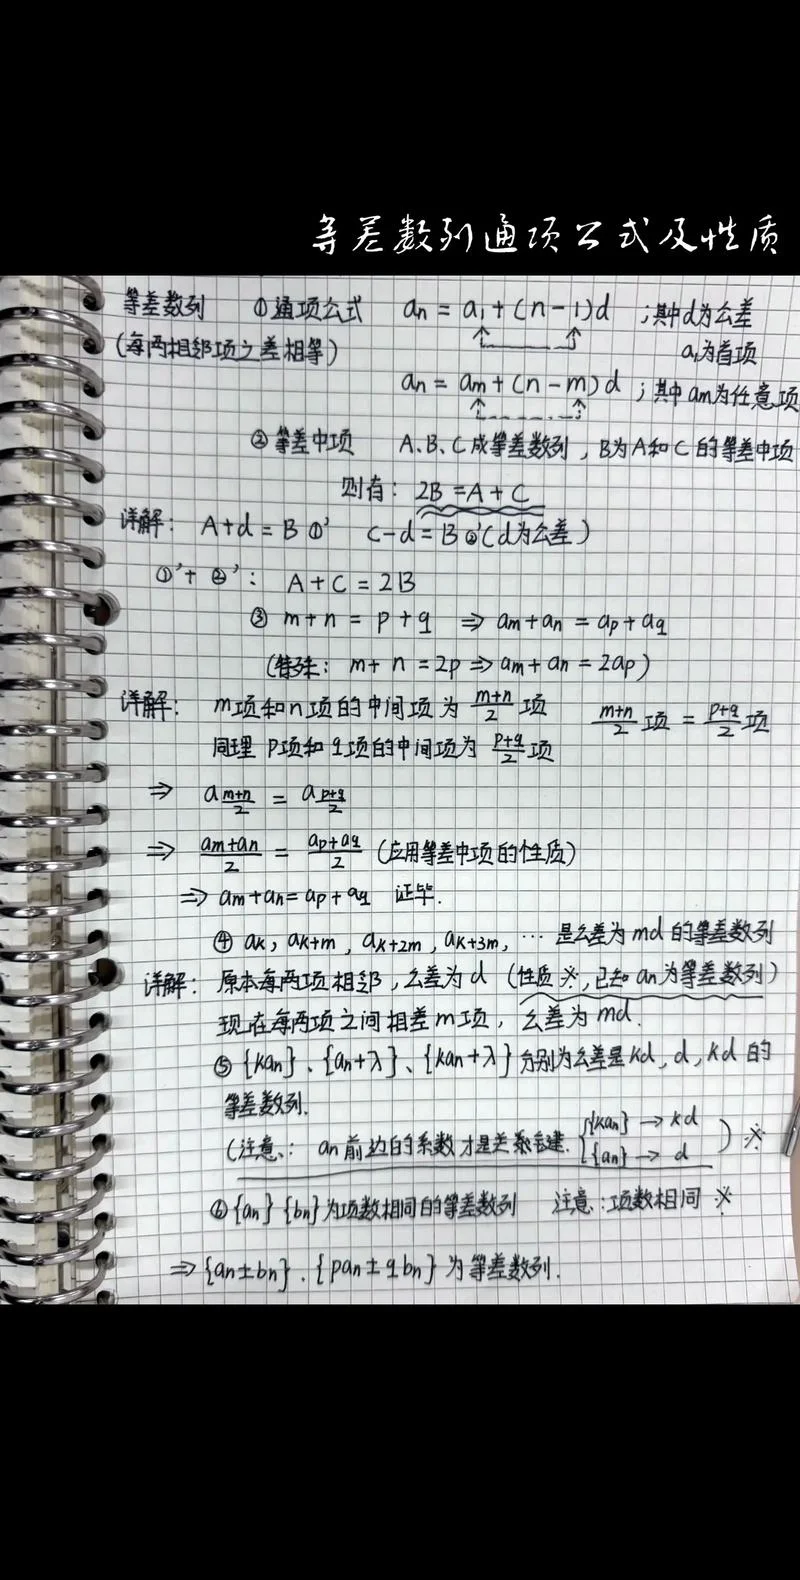 等差数列通项公式及性质
等差数列 ①通项公式 an = a1 + (n-1)d ;其中d为公差
(每两相邻项之差相等) a1为首项
an = am + (n-m)d ;其中am为任意项
②等差中项 A、B、C成等差数列,B为A和C的等差中项
则有: 2B = A + C
详解: A+d = B ①' C-d = B ②'(d为公差)
①'+②': A+C = 2B
③ m+n = p+q ⇒ am+an = ap+aq
(特殊: m+n = 2p ⇒ am+an = 2ap)
详解: m项和n项的中间项为 (m+n)/2 项 (m+n)/2 项 = (p+q)/2 项
同理 p项和q项的中间项为 (p+q)/2 项
⇒ a(m+n)/2 = a(p+q)/2
⇒ (am+an)/2 = (ap+aq)/2 (应用等差中项的性质)
⇒ am+an = ap+aq 证毕.
④ ak, ak+m, ak+2m, ak+3m, … 是公差为md的等差数列
详解: 原本每两项相邻,公差为d (性质※,已知an为等差数列)
现在每两项之间相差m项,公差为md.
⑤ {kan}、{an+λ}、{kan+λ}分别为公差是kd, d, kd的
等差数列.
(注意: an前边的系数才是关系关键. {{kan} → kd
{an} → d ) ※
⑥{an}{bn}为项数相同的等差数列 注意:项数相同 ※
⇒ {an±bn}. {pan±qbn}为等差数列.